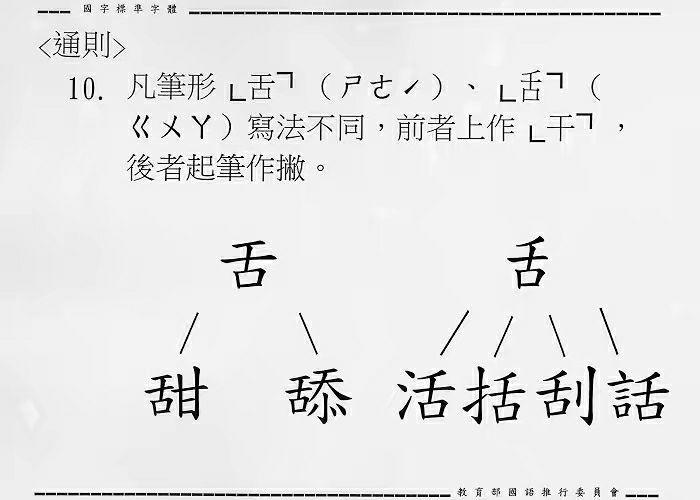 國字標準字體
<通則>
10. 凡筆形「舌」（ㄕㄜˊ）、「舌」（
ㄍㄨㄚ）寫法不同，前者上作「干」，
後者起筆作撇。
舌 舌
甜 舔 活 括 刮 話
教育部國語推行委員會